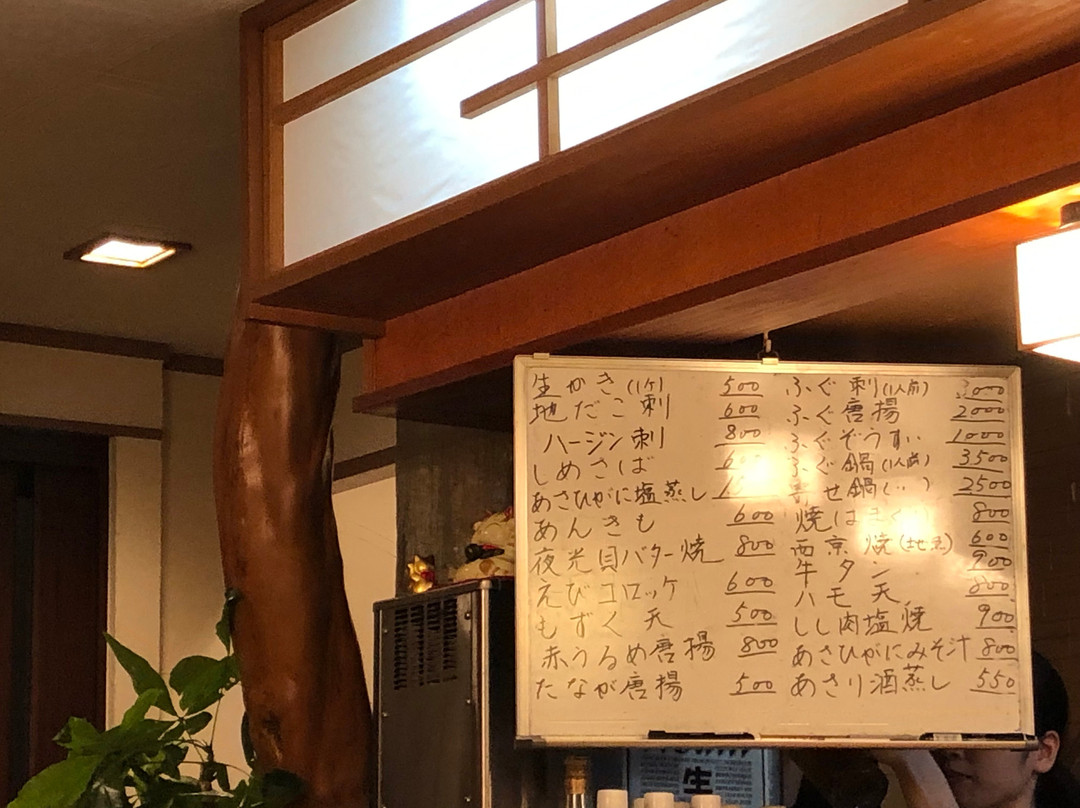 生かき(1ケ) 500
地だこ刺 600
ハージン刺 800
しめさば
あさひがに塩蒸し
あんきも 600
夜光貝バター焼 800
えびコロッケ 600
もずく天 500
赤うるめ唐揚 800
たなが唐揚 500
ふぐ刺(1人前) 3000
ふぐ唐揚 2000
ふぐぞうすい 1000
ふぐ鍋(1人前) 3500
せ鍋 2500
焼は 800
西京焼 600
牛タン 900
ハモ天 800
しし肉塩焼 900
あさひがにみそ汁 800
あさり酒蒸し 550
生